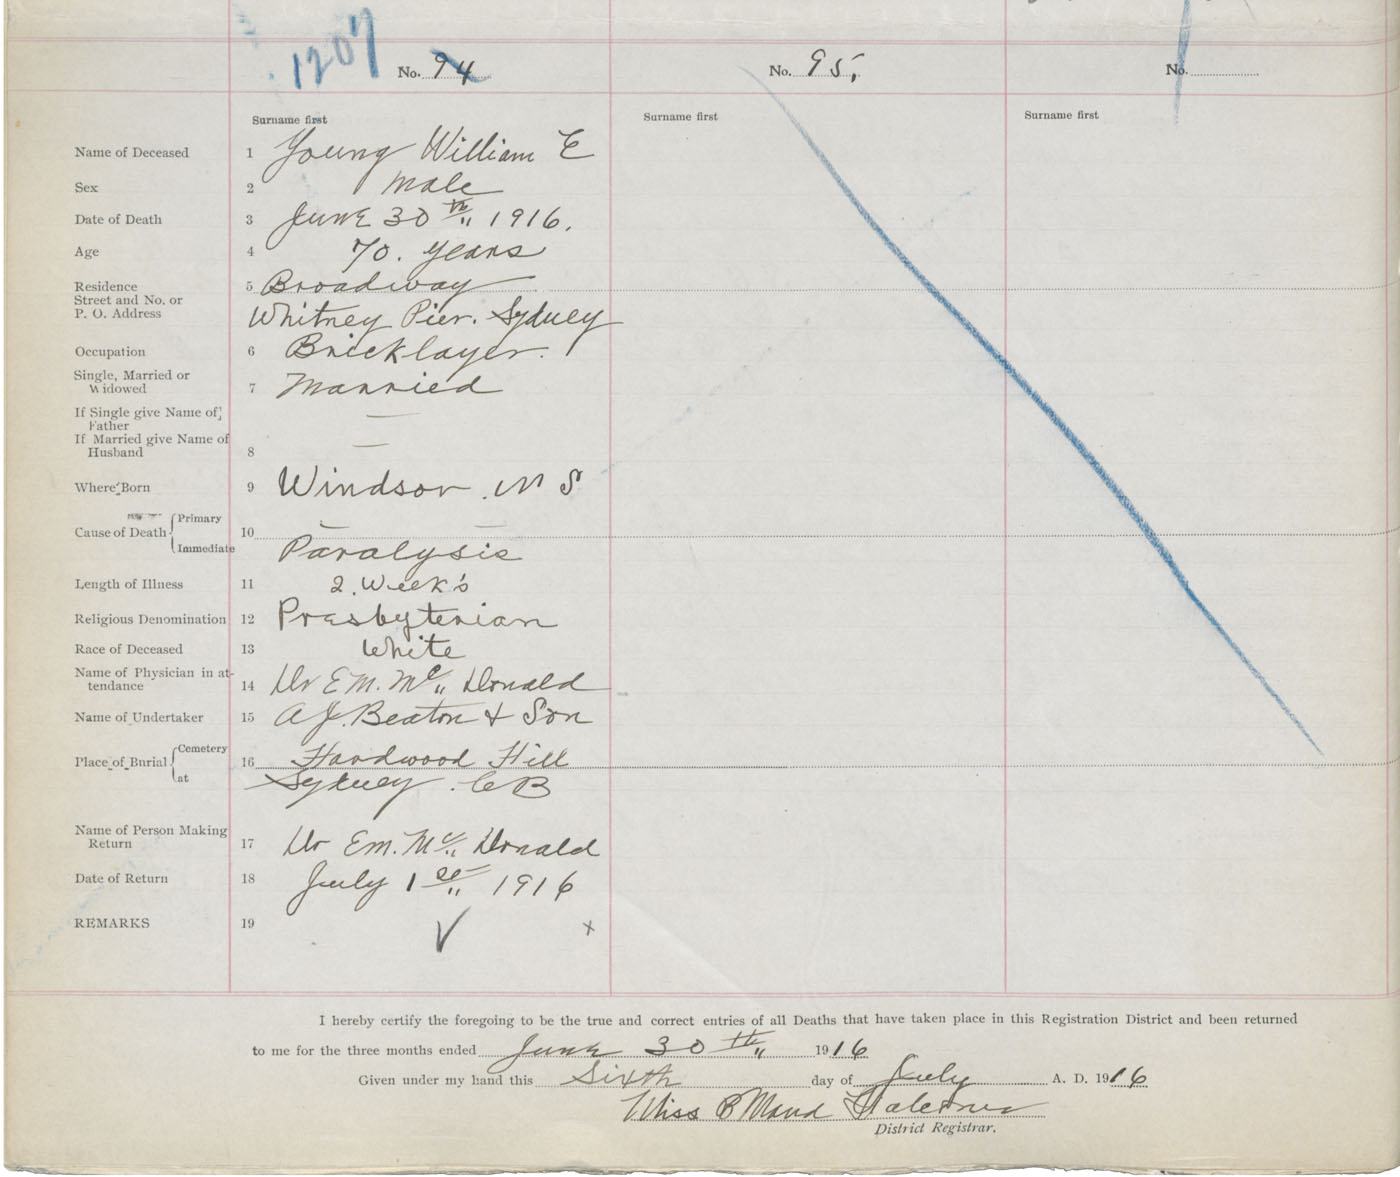 1207
No. 94
No. 95.
No.
Surname first
Surname first
Surname first
Name of Deceased 1 Young William E
Sex 2 Male
Date of Death 3 June 30th 1916.
Age 4 70. years
Residence 5 Broadway
Street and No. or
P. O. Address Whitney Pier. Sydney
Occupation 6 Bricklayer.
Single, Married or
Widowed 7 Married
If Single give Name of
Father —
If Married give Name of
Husband 8 —
Where Born 9 Windsor. N S
Cause of Death Primary 10 — —
Immediate Paralysis
Length of Illness 11 2. Week's
Religious Denomination 12 Presbyterian
Race of Deceased 13 White
Name of Physician in at-
tendance 14 Dr E M. Mc Donald
Name of Undertaker 15 A J. Beaton & Son
Place of Burial Cemetery 16 Hardwood Hill
at Sydney. C B
Name of Person Making
Return 17 Dr Em. Mc Donald
Date of Return 18 July 1st 1916
REMARKS 19 ✓ x
I hereby certify the foregoing to be the true and correct entries of all Deaths that have taken place in this Registration District and been returned
to me for the three months ended June 30th 1916
Given under my hand this Sixth day of July A. D. 1916
Miss B Maud
District Registrar.